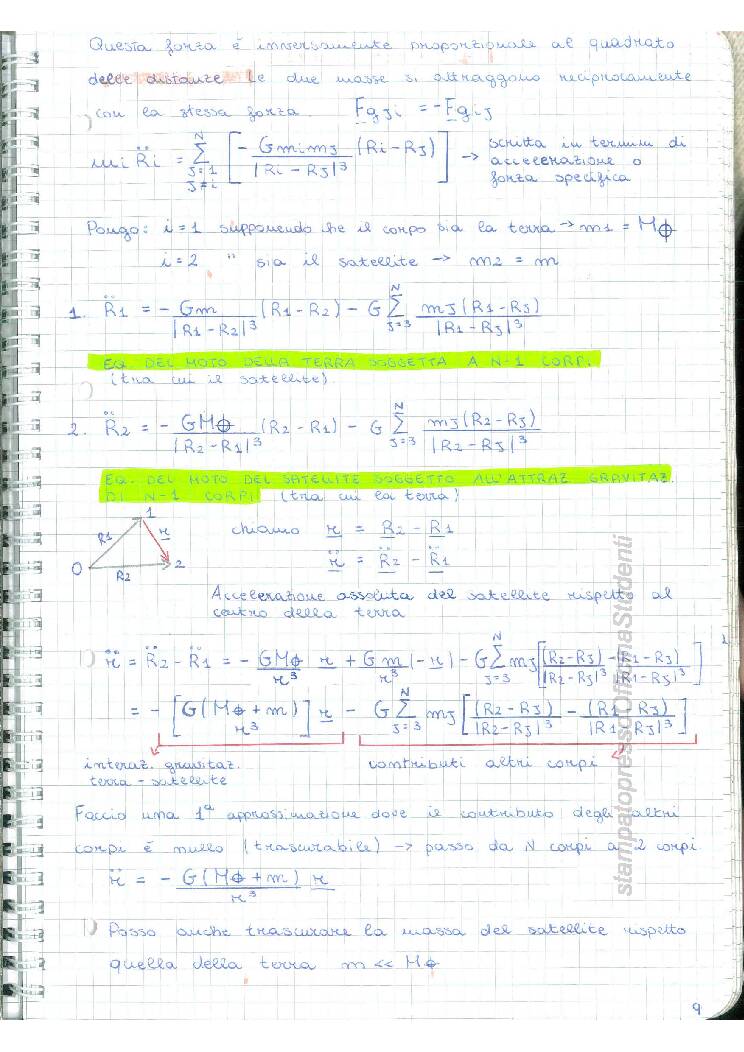 Questa forza è inversamente proporzionale al quadrato
delle distanze. Le due masse si attraggono reciprocamente
con la stessa forza. Fgji = -Fgij
mi R̈i = Σ_{j=1, j≠i}^{N} [ - Gmimj / |Ri - Rj|³ (Ri - Rj) ] → scritta in termini di
accelerazione o
forza specifica
Pongo: i = 1 supponendo che il corpo sia la terra → m1 = M⊕
i = 2 " sia il satellite → m2 = m
1. R̈1 = - Gm / |R1 - R2|³ (R1 - R2) - G Σ_{j=3}^{N} mj(R1 - Rj) / |R1 - Rj|³
EQ. DEL MOTO DELLA TERRA SOGGETTA A N-1 CORPI.
(tra cui il satellite)
2. R̈2 = - GM⊕ / |R2 - R1|³ (R2 - R1) - G Σ_{j=3}^{N} mj(R2 - Rj) / |R2 - Rj|³
EQ. DEL MOTO DEL SATELLITE SOGGETTO ALL'ATTRAZ. GRAVITAZ.
DI N-1 CORPI (tra cui la terra)
1
R1
r
O
R2
2
chiamo r = R2 - R1
r̈ = R̈2 - R̈1
Accelerazione assoluta del satellite rispetto al
centro della terra
r̈ = R̈2 - R̈1 = - GM⊕ / r³ r + Gm / r³ (-r) - G Σ_{j=3}^{N} mj [ (R2 - Rj) / |R2 - Rj|³ - (R1 - Rj) / |R1 - Rj|³ ]
= - [ G(M⊕ + m) / r³ ] r - G Σ_{j=3}^{N} mj [ (R2 - Rj) / |R2 - Rj|³ - (R1 - Rj) / |R1 - Rj|³ ]
interaz. gravitaz.
terra - satellite
contributi altri corpi
Faccio una 1ª approssimazione dove il contributo degli altri
corpi è nullo (trascurabile) → passo da N corpi a 2 corpi.
r̈ = - G(M⊕ + m) / r³ r
Posso anche trascurare la massa del satellite rispetto
quella della terra m << M⊕
9
stampatopressoOfficinaStudenti